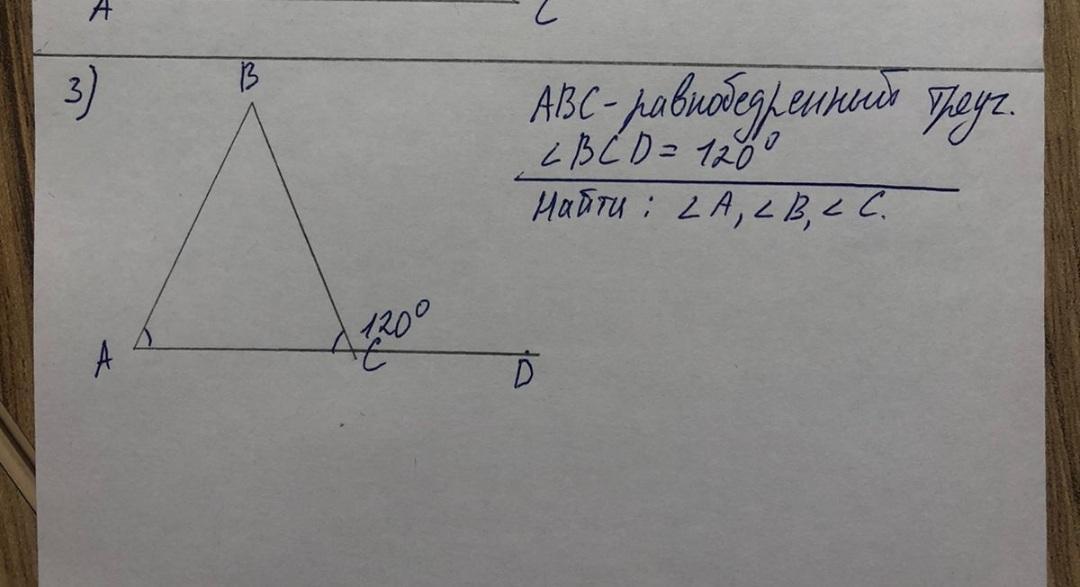 A C
3)
B
ABC - равнобедренный треуг.
∠BCD = 120°
Найти: ∠A, ∠B, ∠C.
120°
A C D